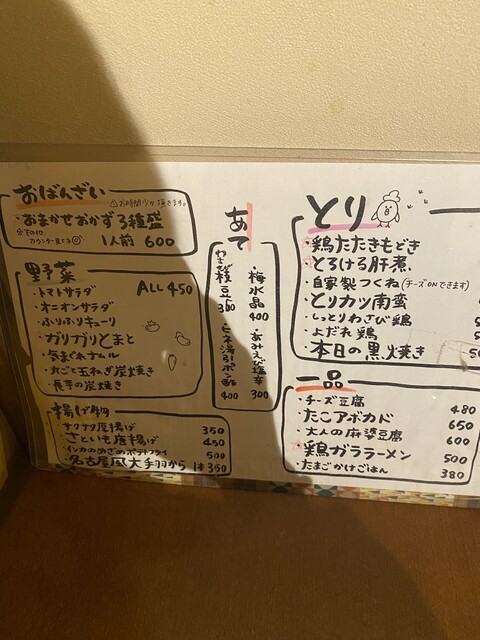 おばんざい
⚠お時間少々頂きます。
・おまかせおかず3種盛
※その他
カウンター見てネ
1人前 600
野菜
ALL 450
・トマトサラダ
・オニオンサラダ
・ふりふりキューリ
・ガリガリとまと
・気まぐれナムル
・丸ごと玉ねぎ炭焼き
・長芋の炭焼き
揚げ物
・サクサク厚揚げ 350
・さといも唐揚げ 450
・インカのめざめポテトフライ 500
・名古屋風大手羽から 1本 350
あて
・梅水晶 400
・あみえび塩辛 300
枝豆 300
・ヒネ湯引ポン酢 400
とり
・鶏たたきもどき
・とろける肝煮
・自家製つくね(チーズONできます)
・とりカツ南蛮
・しっとりわさび鶏
・よだれ鶏
・本日の黒焼き
一品
・チーズ豆腐 480
・たこアボカド 650
・大人の麻婆豆腐 600
・鶏ガララーメン 500
・たまごかけごはん 380